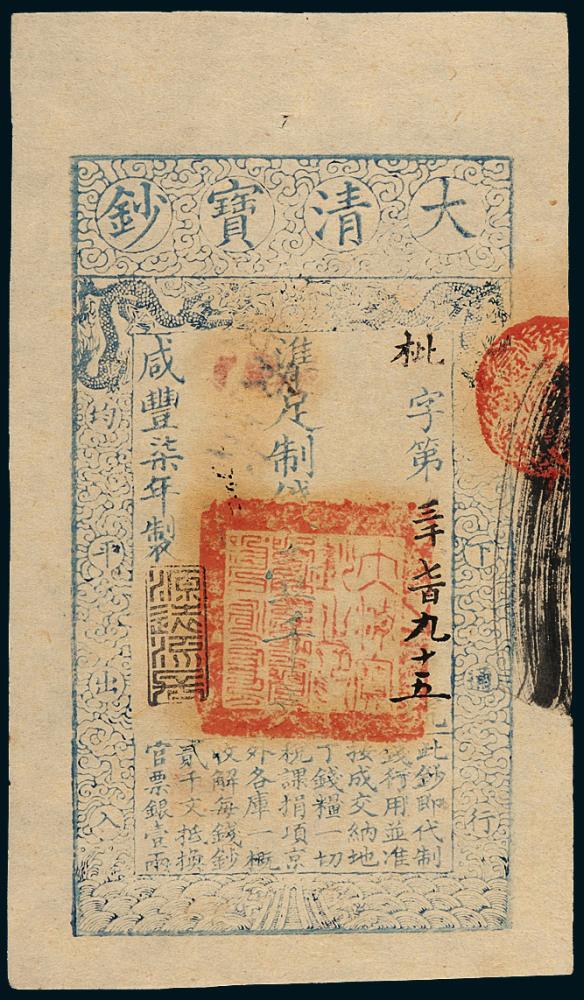 大清寶鈔
枇字第三千七百九十五
準足制錢
咸豐柒年製
源遠流長
下通行
均平出入
此鈔即代制
錢行用並准
按成交納地
丁錢糧一切
稅課捐項京
外各庫一概
收解每錢鈔
貳千文抵換
官票銀壹兩